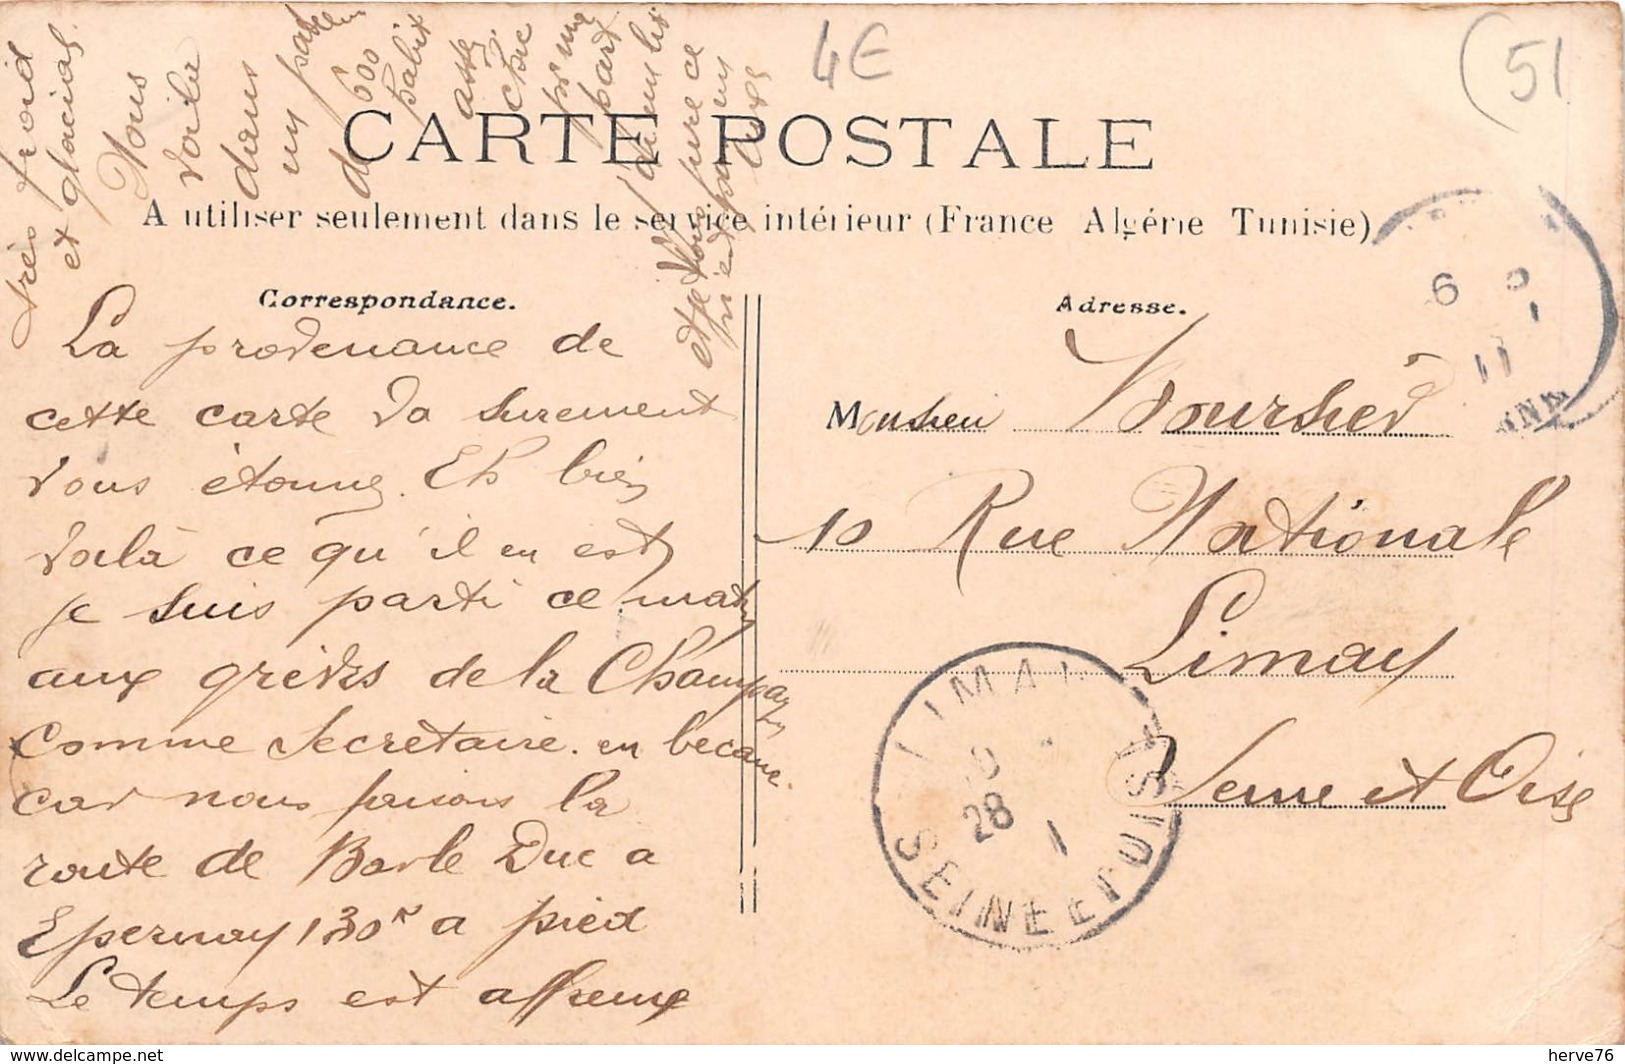 4E
(51
CARTE POSTALE
A utiliser seulement dans le service intérieur (France Algérie Tunisie)
Correspondance.
La provenance de
cette carte va surement
vous étonner. Eh bien
voilà ce qu'il en est
je suis parti ce matin
aux grèves de la Champagne
comme Secrétaire. en becane.
car nous faisons la
route de Bar le Duc a
Epernay 130k a pied
Le temps est affreux
très froid
et glacial.
Nous
voila
dans
un patelin
de 600
habit
assez
chic
pr ma
part
j'ai un lit
Adresse.
Monsieur
10 Rue Nationale
Limay
Seine et Oise
6
11
LIMAY
28
1
SEINE ET OISE
herve76
www.delcampe.net